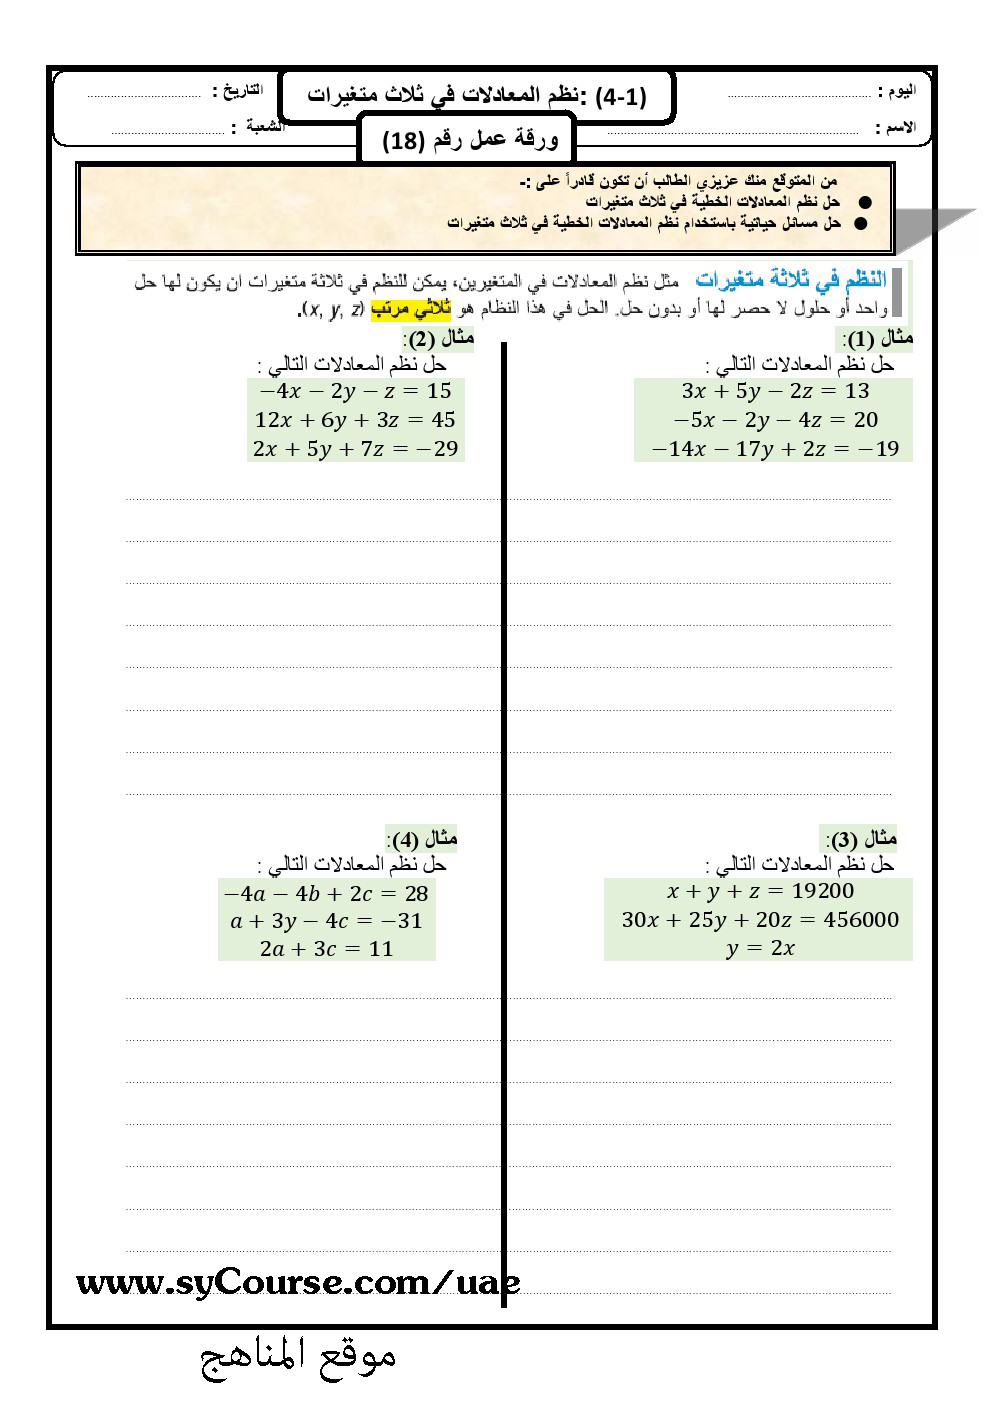 اليوم : ................
(4-1) :نظم المعادلات في ثلاث متغيرات
التاريخ : ................
الاسم : ................
ورقة عمل رقم (18)
الشعبة : ................
من المتوقع منك عزيزي الطالب أن تكون قادراً على :-
● حل نظم المعادلات الخطية في ثلاث متغيرات
● حل مسائل حياتية باستخدام نظم المعادلات الخطية في ثلاث متغيرات
النظم في ثلاثة متغيرات مثل نظم المعادلات في المتغيرين، يمكن للنظم في ثلاثة متغيرات ان يكون لها حل
واحد أو حلول لا حصر لها أو بدون حل. الحل في هذا النظام هو ثلاثي مرتب (x, y, z).
مثال (1):
حل نظم المعادلات التالي :
3x + 5y − 2z = 13
−5x − 2y − 4z = 20
−14x − 17y + 2z = −19
مثال (2):
حل نظم المعادلات التالي :
−4x − 2y − z = 15
12x + 6y + 3z = 45
2x + 5y + 7z = −29
مثال (3):
حل نظم المعادلات التالي :
x + y + z = 19200
30x + 25y + 20z = 456000
y = 2x
مثال (4):
حل نظم المعادلات التالي :
−4a − 4b + 2c = 28
a + 3y − 4c = −31
2a + 3c = 11
www.syCourse.com/uae
موقع المناهج